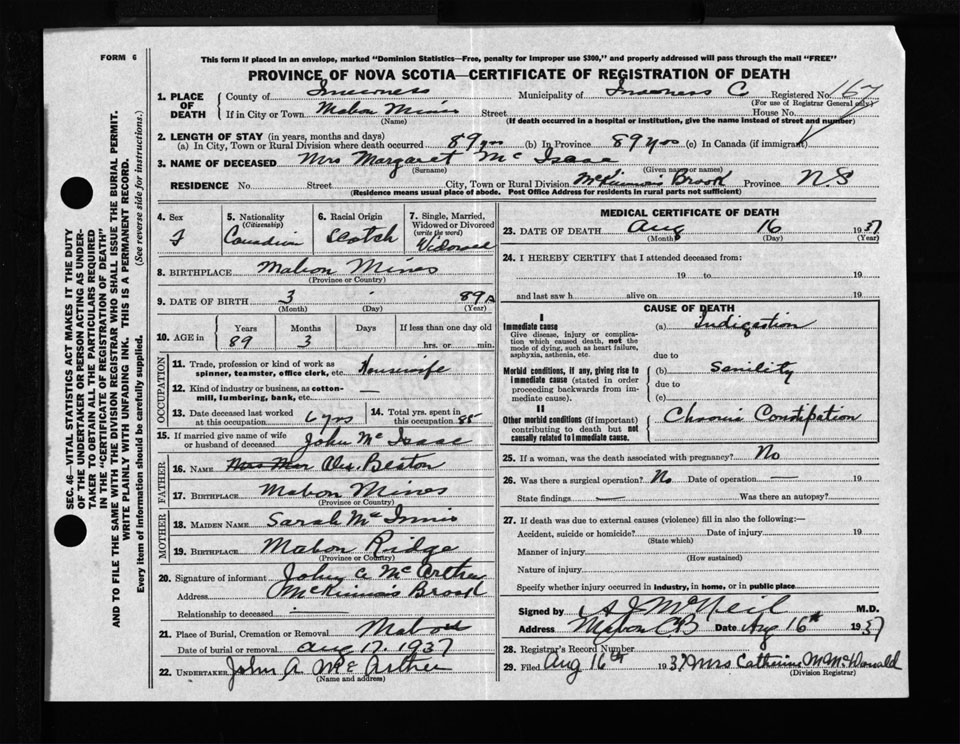 FORM 6
This form if placed in an envelope, marked "Dominion Statistics—Free, penalty for improper use $300," and properly addressed will pass through the mail "FREE"
PROVINCE OF NOVA SCOTIA—CERTIFICATE OF REGISTRATION OF DEATH
1. PLACE OF DEATH
County of Inverness Municipality of Inverness C Registered No. 167
(For use of Registrar General only)
If in City or Town Mabou Mines Street House No.
(Name) (If death occurred in a hospital or institution, give the name instead of street and number)
2. LENGTH OF STAY (in years, months and days)
(a) In City, Town or Rural Division where death occurred 89 yrs (b) In Province 89 yrs (c) In Canada (if immigrant)
3. NAME OF DECEASED Mrs Margaret Mc Isaac
(Surname) (Given name or names)
RESIDENCE No. Street City, Town or Rural Division McKinnons Brook Province N.S
(Residence means usual place of abode. Post Office Address for residents in rural parts not sufficient)
4. Sex F
5. Nationality (Citizenship) Canadian
6. Racial Origin Scotch
7. Single, Married, Widowed or Divorced (write the word) Widowed
8. BIRTHPLACE Mabou Mines
(Province or Country)
9. DATE OF BIRTH 3
(Month) (Day) (Year)
10. AGE in Years 89 Months 3 Days If less than one day old hrs. or min.
OCCUPATION
11. Trade, profession or kind of work as spinner, teamster, office clerk, etc. Housewife
12. Kind of industry or business, as cotton-mill, lumbering, bank, etc. —
13. Date deceased last worked at this occupation 6 yrs
14. Total yrs. spent in this occupation 85
15. If married give name of wife or husband of deceased John Mc Isaac
FATHER
16. NAME Alex. Beaton
17. BIRTHPLACE Mabou Mines
(Province or Country)
MOTHER
18. MAIDEN NAME Sarah Mc Innis
19. BIRTHPLACE Mabou Ridge
(Province or Country)
20. Signature of informant John A Mc Arthur
Address McKinnons Brook
Relationship to deceased
21. Place of Burial, Cremation or Removal Mabou
Date of burial or removal Aug 17. 1937
22. UNDERTAKER John A. Mc Arthur
(Name and address)
MEDICAL CERTIFICATE OF DEATH
23. DATE OF DEATH Aug 16 1937
(Month) (Day) (Year)
24. I HEREBY CERTIFY that I attended deceased from:
19 to 19
and last saw h alive on 19
CAUSE OF DEATH
I
Immediate cause
Give disease, injury or complication which caused death, not the mode of dying, such as heart failure, asphyxia, asthenia, etc.
(a) Indigestion
due to
Morbid conditions, if any, giving rise to immediate cause (stated in order proceeding backwards from immediate cause).
(b) Senility
due to
(c)
II
Other morbid conditions (if important) contributing to death but not causally related to immediate cause.
Chronic Constipation
25. If a woman, was the death associated with pregnancy? No
26. Was there a surgical operation? No Date of operation — 19
State findings — Was there an autopsy?
27. If death was due to external causes (violence) fill in also the following:—
Accident, suicide or homicide? Date of injury 19
(State which)
Manner of injury
(How sustained)
Nature of injury
Specify whether injury occurred in industry, in home, or in public place
Signed by A J McNeil M.D.
Address Mabou CB Date Aug 16th 1937
28. Registrar's Record Number
29. Filed Aug 16th 1937 Mrs Catherine M McDonald
(Division Registrar)
SEC. 46—VITAL STATISTICS ACT MAKES IT THE DUTY OF THE UNDERTAKER OR PERSON ACTING AS UNDERTAKER TO OBTAIN ALL THE PARTICULARS REQUIRED IN THE "CERTIFICATE OF REGISTRATION OF DEATH" AND TO FILE THE SAME WITH THE DIVISION REGISTRAR WHO SHALL ISSUE THE BURIAL PERMIT.
WRITE PLAINLY WITH UNFADING INK. THIS IS A PERMANENT RECORD.
Every item of information should be carefully supplied. (See reverse side for instructions.)